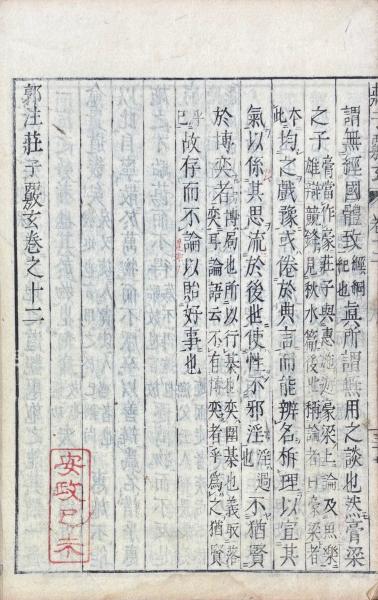 謂無經國體致經綱紀也真所謂無用之談也然膏梁
之子膏當作豪莊子與惠施豪梁上論及魚樂雄辯競鋒見秋水篇後世稱論者曰豪梁者
本均之戲豫或倦於典言而能辨名析理以宣其
氣以係其思流於後也使性不邪淫也淫過不猶賢
於博奕者博局也所以行棊也奕圍棊也義取落奕耳論語云不有博奕者乎爲之猶賢乎已
故存而不論以貽好事也
郭注莊子覈玄卷之十二
安政己未